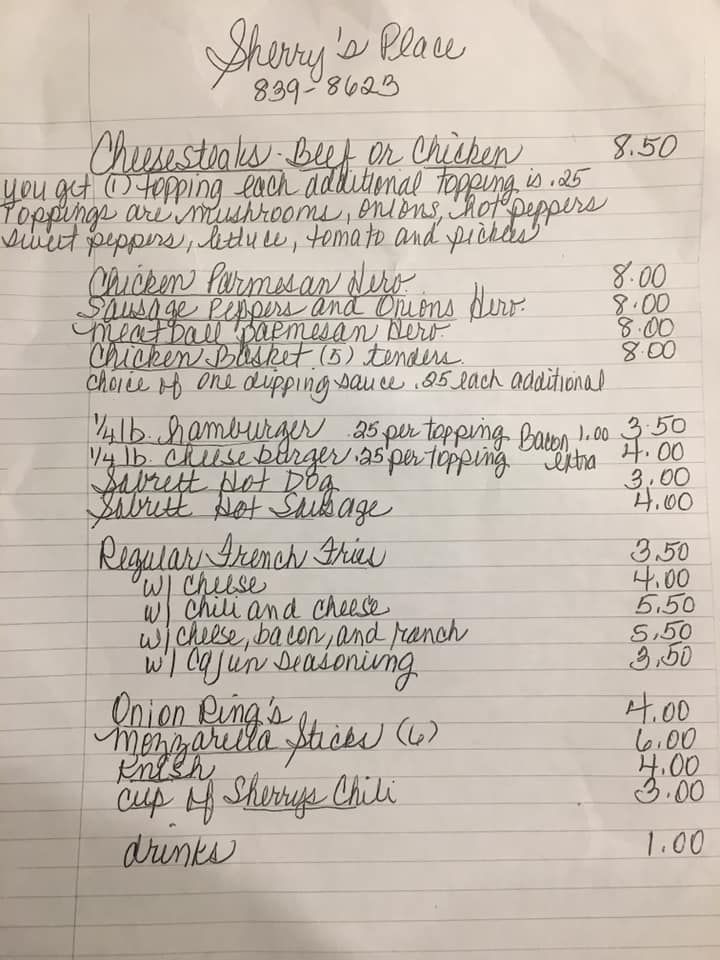 Sherry's Place
839-8623
Cheesesteaks - Beef or Chicken 8.50
you get (1) topping each additional topping is .25
Toppings are mushrooms, onions, hot peppers
sweet peppers, lettuce, tomato and pickles
Chicken Parmesan Hero. 8.00
Sausage Peppers and Onions Hero. 8.00
Meatball Parmesan Hero. 8.00
Chicken Basket (5) tenders. 8.00
choice of one dipping sauce .25 each additional
1/4 lb. hamburger .25 per topping Bacon 1.00 3.50
1/4 lb. cheeseburger .25 per topping extra 4.00
Sabrett Hot Dog 3.00
Sabrett Hot Sausage 4.00
Regular French Fries 3.50
w/ cheese 4.00
w/ chili and cheese 5.50
w/ cheese, bacon, and ranch 5.50
w/ Cajun seasoning 3.50
Onion Ring's 4.00
Mozzarella Sticks (6) 6.00
Knish 4.00
cup of Sherrys Chili 3.00
drinks 1.00